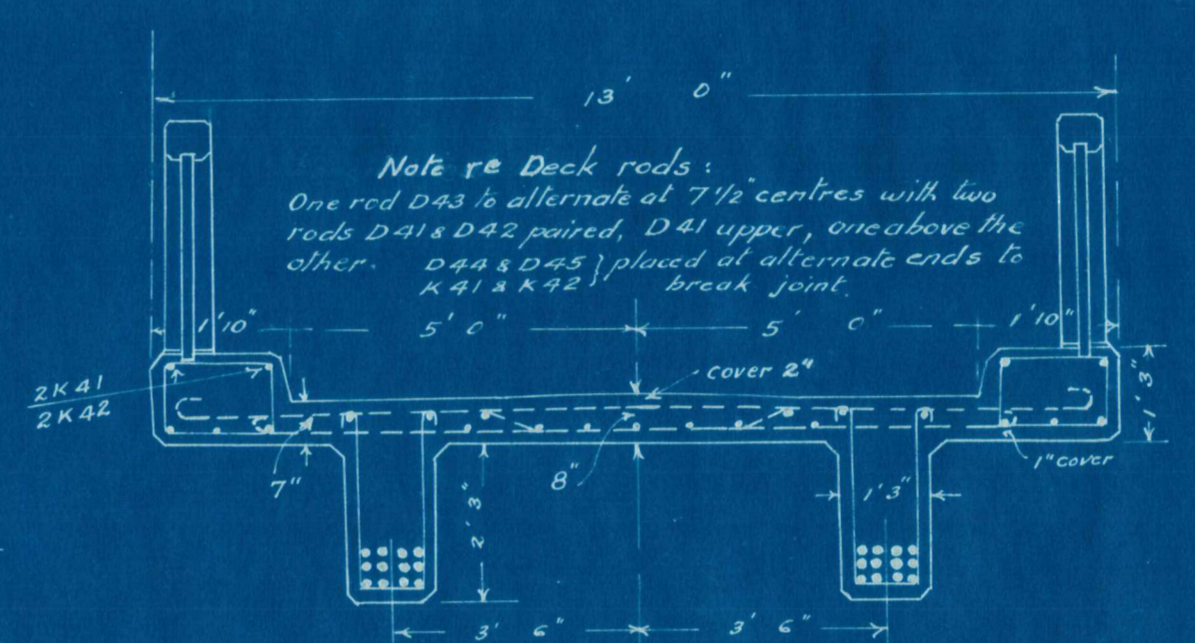 13' 0"
Note re Deck rods:
One rod D43 to alternate at 7 1/2" centres with two
rods D41 & D42 paired, D41 upper, one above the
other. D44 & D45 } placed at alternate ends to
K41 & K42 } break joint.
1'10" 5' 0" 5' 0" 1'10"
cover 2"
2K41
2K42
1'3"
7"
8"
1" cover
2'3"
1'3"
3' 6" 3' 6"